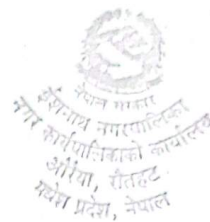 नेपाल सरकार
ईशनाथ नगरपालिका
नगर कार्यपालिकाको कार्यालय
औरैया, रौतहट
मधेश प्रदेश, नेपाल